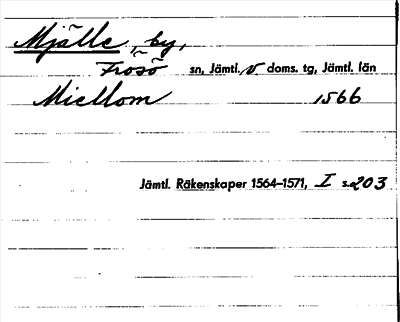 Mjälle, by,
Frösö sn, Jämtl. v doms. tg, Jämtl. län
Miellom 1566
Jämtl. Räkenskaper 1564–1571, I s. 203